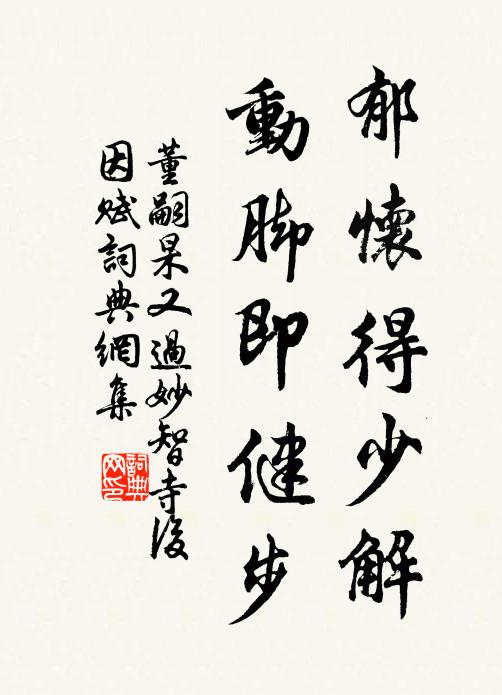 郁懷得少解
動脚即健步
董嗣杲又過妙智寺後
因賦詞典網集
詞典網印